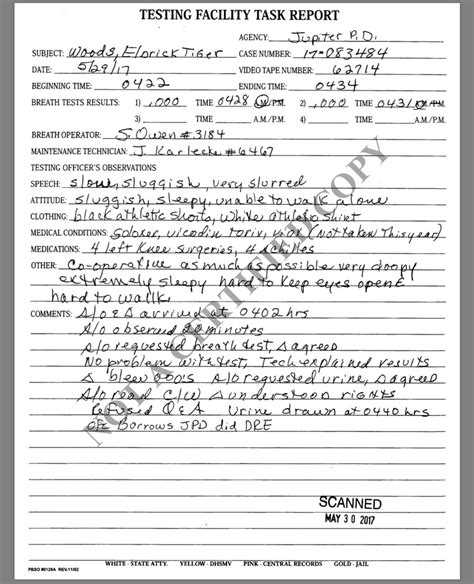 TESTING FACILITY TASK REPORT
AGENCY: Jupiter P.D.
SUBJECT: Woods, Eldrick Tiger CASE NUMBER: 17-083484
DATE: 5/29/17 VIDEO TAPE NUMBER: 62714
BEGINNING TIME: 0422 ENDING TIME: 0434
BREATH TESTS RESULTS: 1) .000 TIME 0428 A.M./P.M. 2) .000 TIME 0431 A.M./P.M.
3) TIME A.M./P.M. 4) TIME A.M./P.M.
BREATH OPERATOR: S. Owen #3184
MAINTENANCE TECHNICIAN: J. Karlecke #6467
TESTING OFFICER'S OBSERVATIONS
SPEECH: slow, sluggish, very slurred
ATTITUDE: sluggish, sleepy, unable to walk alone
CLOTHING: black athletic shorts, white athletic shirt
MEDICAL CONDITIONS: vicodin torix, (not taken this year)
MEDICATIONS: 4 left Knee Surgeries, 4 achilles
OTHER: Co-operative as much as possible very
extremely sleepy hard to keep eyes open &
hard to walk
COMMENTS: A/O & ∆ arrived at 0402 hrs
A/O observed 20 minutes
A/O requested breath test, ∆ agreed
No problem with test, Tech explained results
∆ blew 000's A/O requested urine, ∆ agreed
A/O read C/W ∆ understood rights
Refused Q&A Urine drawn at 0440 hrs
Ofc Borrows JPD did DRE
NOT A CERTIFIED COPY
SCANNED
MAY 30 2017
PBSO #0129A REV. 11/02
WHITE - STATE ATTY. YELLOW - DHSMV PINK - CENTRAL RECORDS GOLD - JAIL